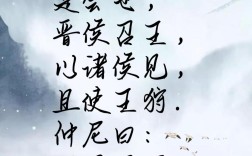 是会也，
晋侯召王，
以诸侯见，
且使王狩.
仲尼曰：